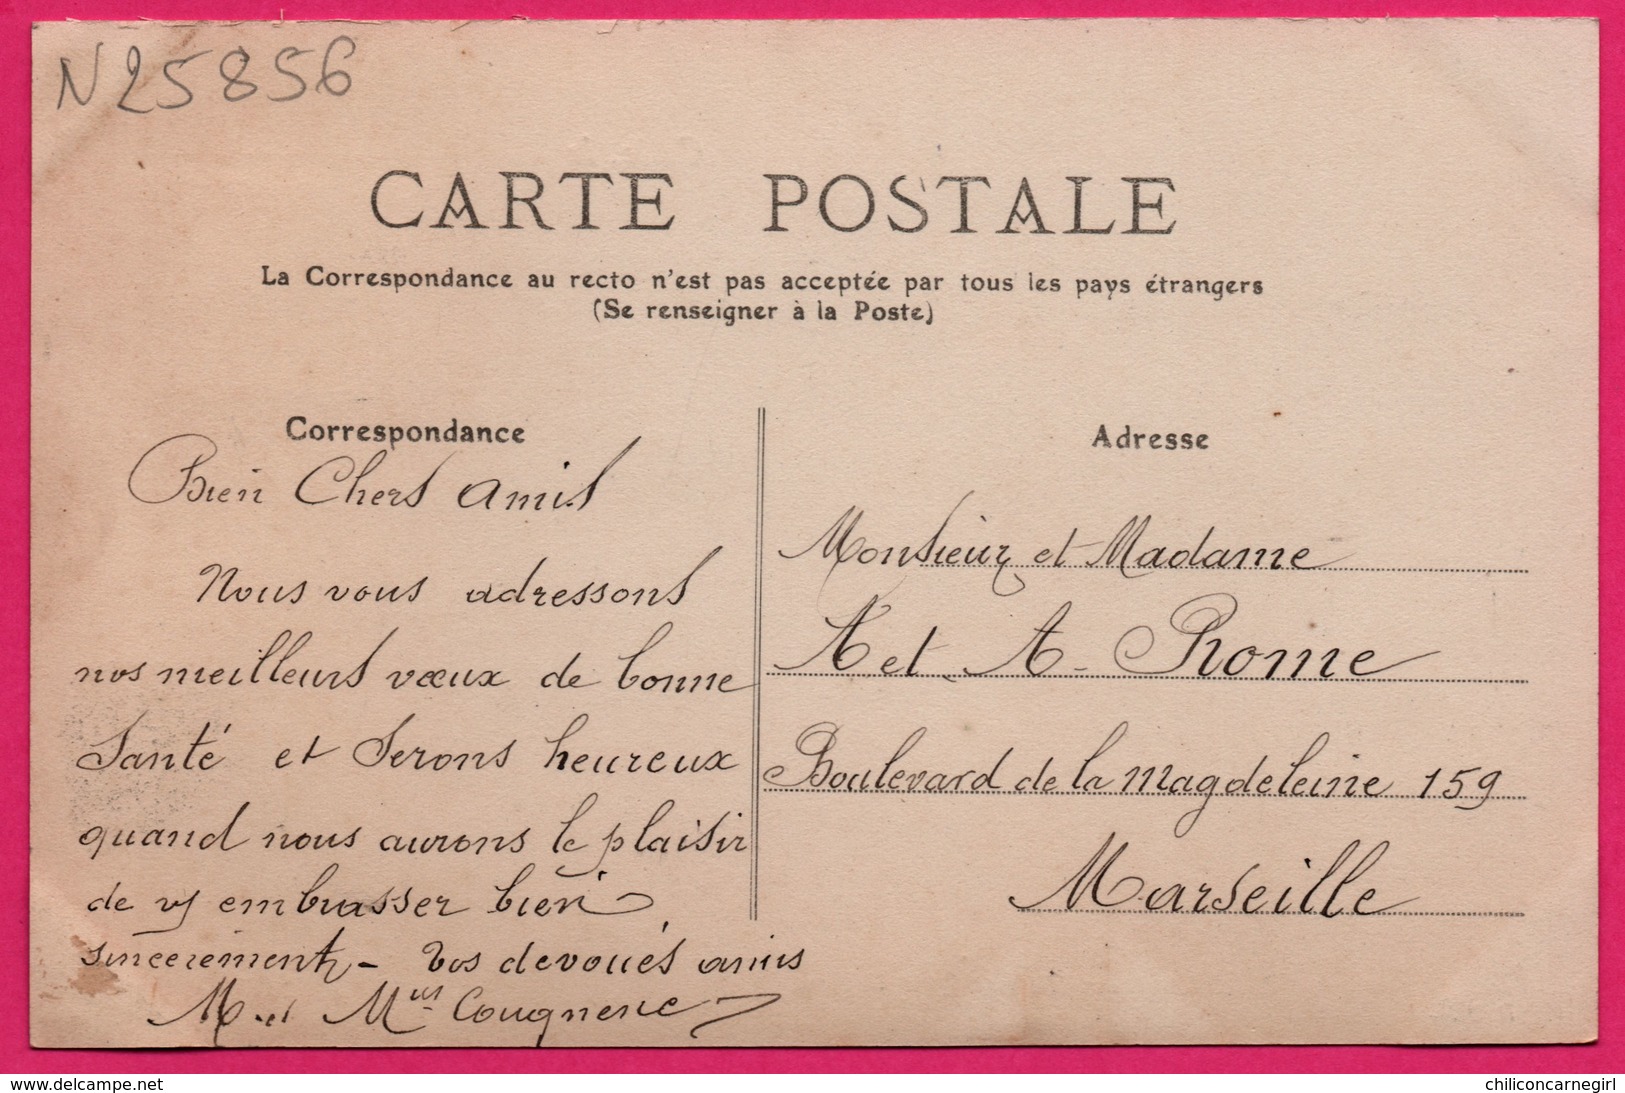 N25856
CARTE POSTALE
La Correspondance au recto n'est pas acceptée par tous les pays étrangers
(Se renseigner à la Poste)
Correspondance
Bien Chers amis
Nous vous adressons
nos meilleurs vœux de bonne
Santé et Serons heureux
quand nous aurons le plaisir
de vs embrasser bien
sincerement - Vos devoués amis
M et M
Adresse
Monsieur et Madame
A et A - Rome
Boulevard de la magdeleine 159
Marseille
delcampe.net
chiliconcarnegirl